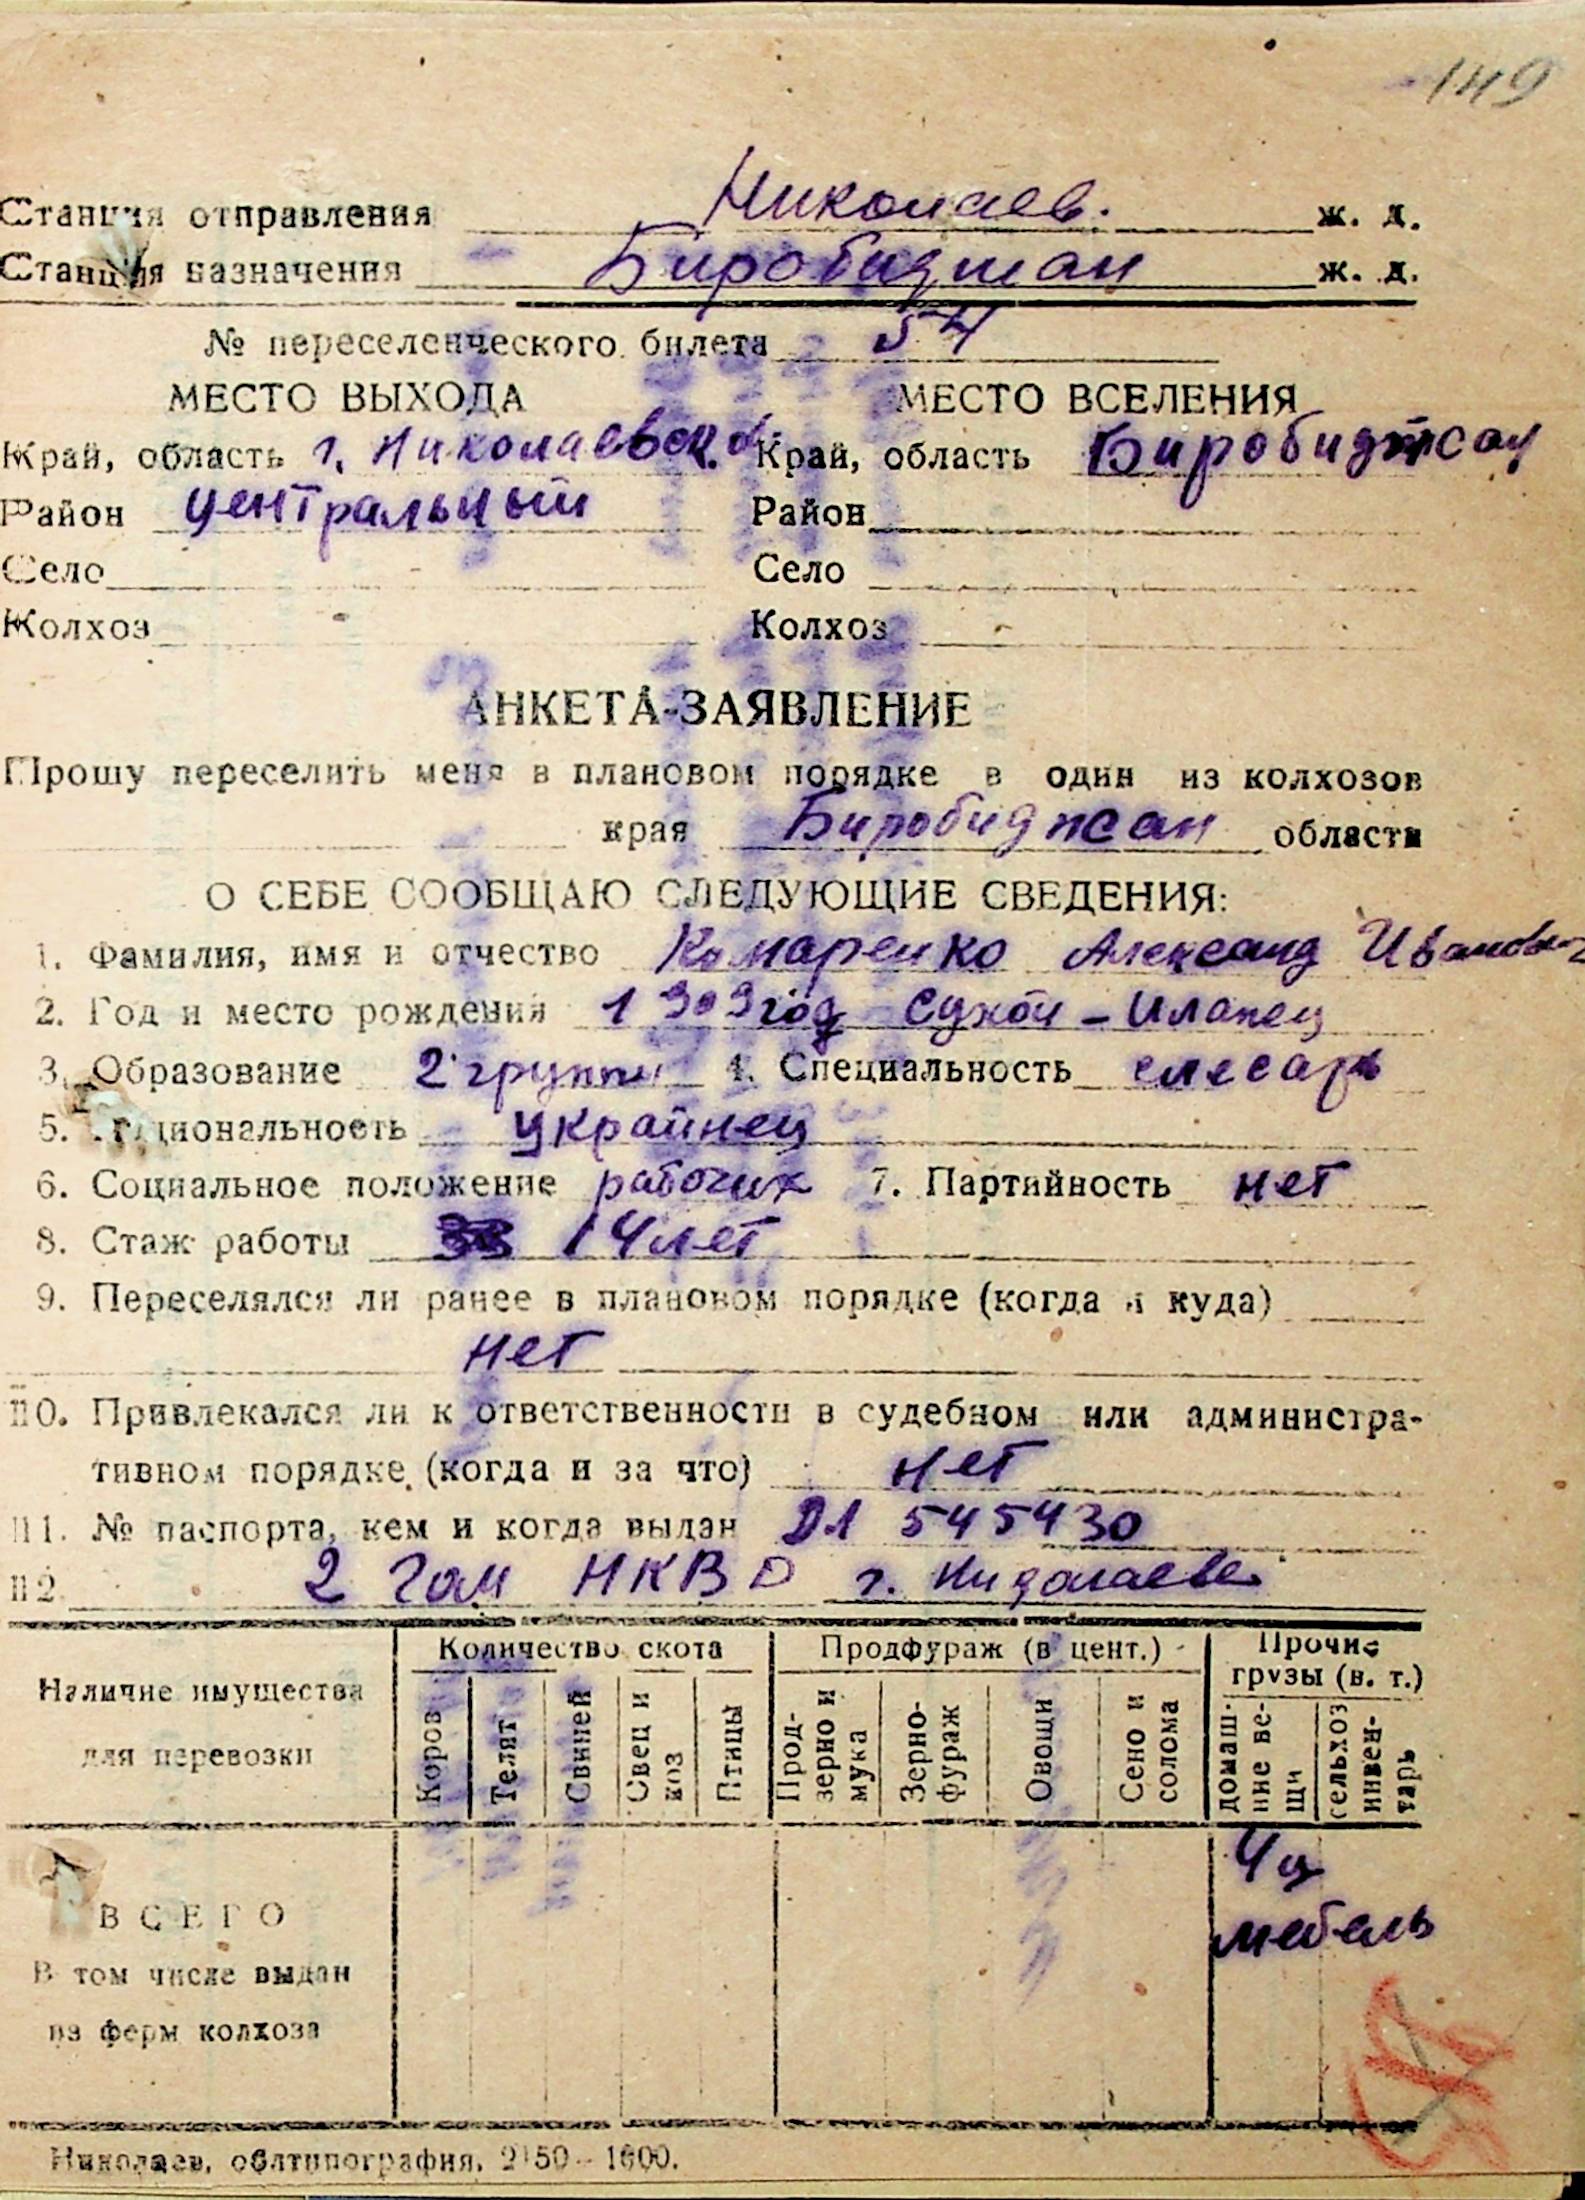 149
Станция отправления Николаев. ж. д.
Станция назначения Биробиджан ж. д.
№ переселенческого билета 54
МЕСТО ВЫХОДА МЕСТО ВСЕЛЕНИЯ
Край, область г. Николаевск. о. Край, область Биробиджан
Район центральный Район
Село Село
Колхоз Колхоз
АНКЕТА-ЗАЯВЛЕНИЕ
Прошу переселить меня в плановом порядке в один из колхозов
края Биробиджан области
О СЕБЕ СООБЩАЮ СЛЕДУЮЩИЕ СВЕДЕНИЯ:
1. Фамилия, имя и отчество Комаренко Александ Иванович
2. Год и место рождения 1909 год Сухой - Иланец
3. Образование 2 группы 4. Специальность слесарь
5. Национальность украйнец
6. Социальное положение рабочих 7. Партийность нет
8. Стаж работы 14 лет
9. Переселялся ли ранее в плановом порядке (когда и куда)
нет
10. Привлекался ли к ответственности в судебном или администра-
тивном порядке (когда и за что) нет
11. № паспорта, кем и когда выдан 545430
12. 2 Гом НКВД г. Николаева
Наличие имущества для перевозки
Количество скота Продфураж (в цент.) Прочие грузы (в. т.)
Коров Телят Свиней Овец и коз Птицы Прод-зерно и мука Зерно-фураж Овощи Сено и солома домаш-ние ве-щи сельхоз инвен-тарь
4 ц
мебель
ВСЕГО
В том числе выдан
из ферм колхоза
Николаев, облтипография. 2150—1600.